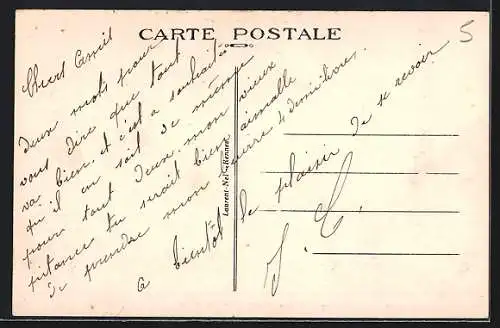 CARTE POSTALE
5
Chers
deux mots pour
vous dire que tout
va bien, et c'est a souhaité
qu'il en soit de même
pour tout deux. mon vieux
pitance tu serait bien aimable
de prendre mon beurre 4 demi livres.
a bientôt le plaisir de se revoir
J. C.
Laurent-Nel, Rennes